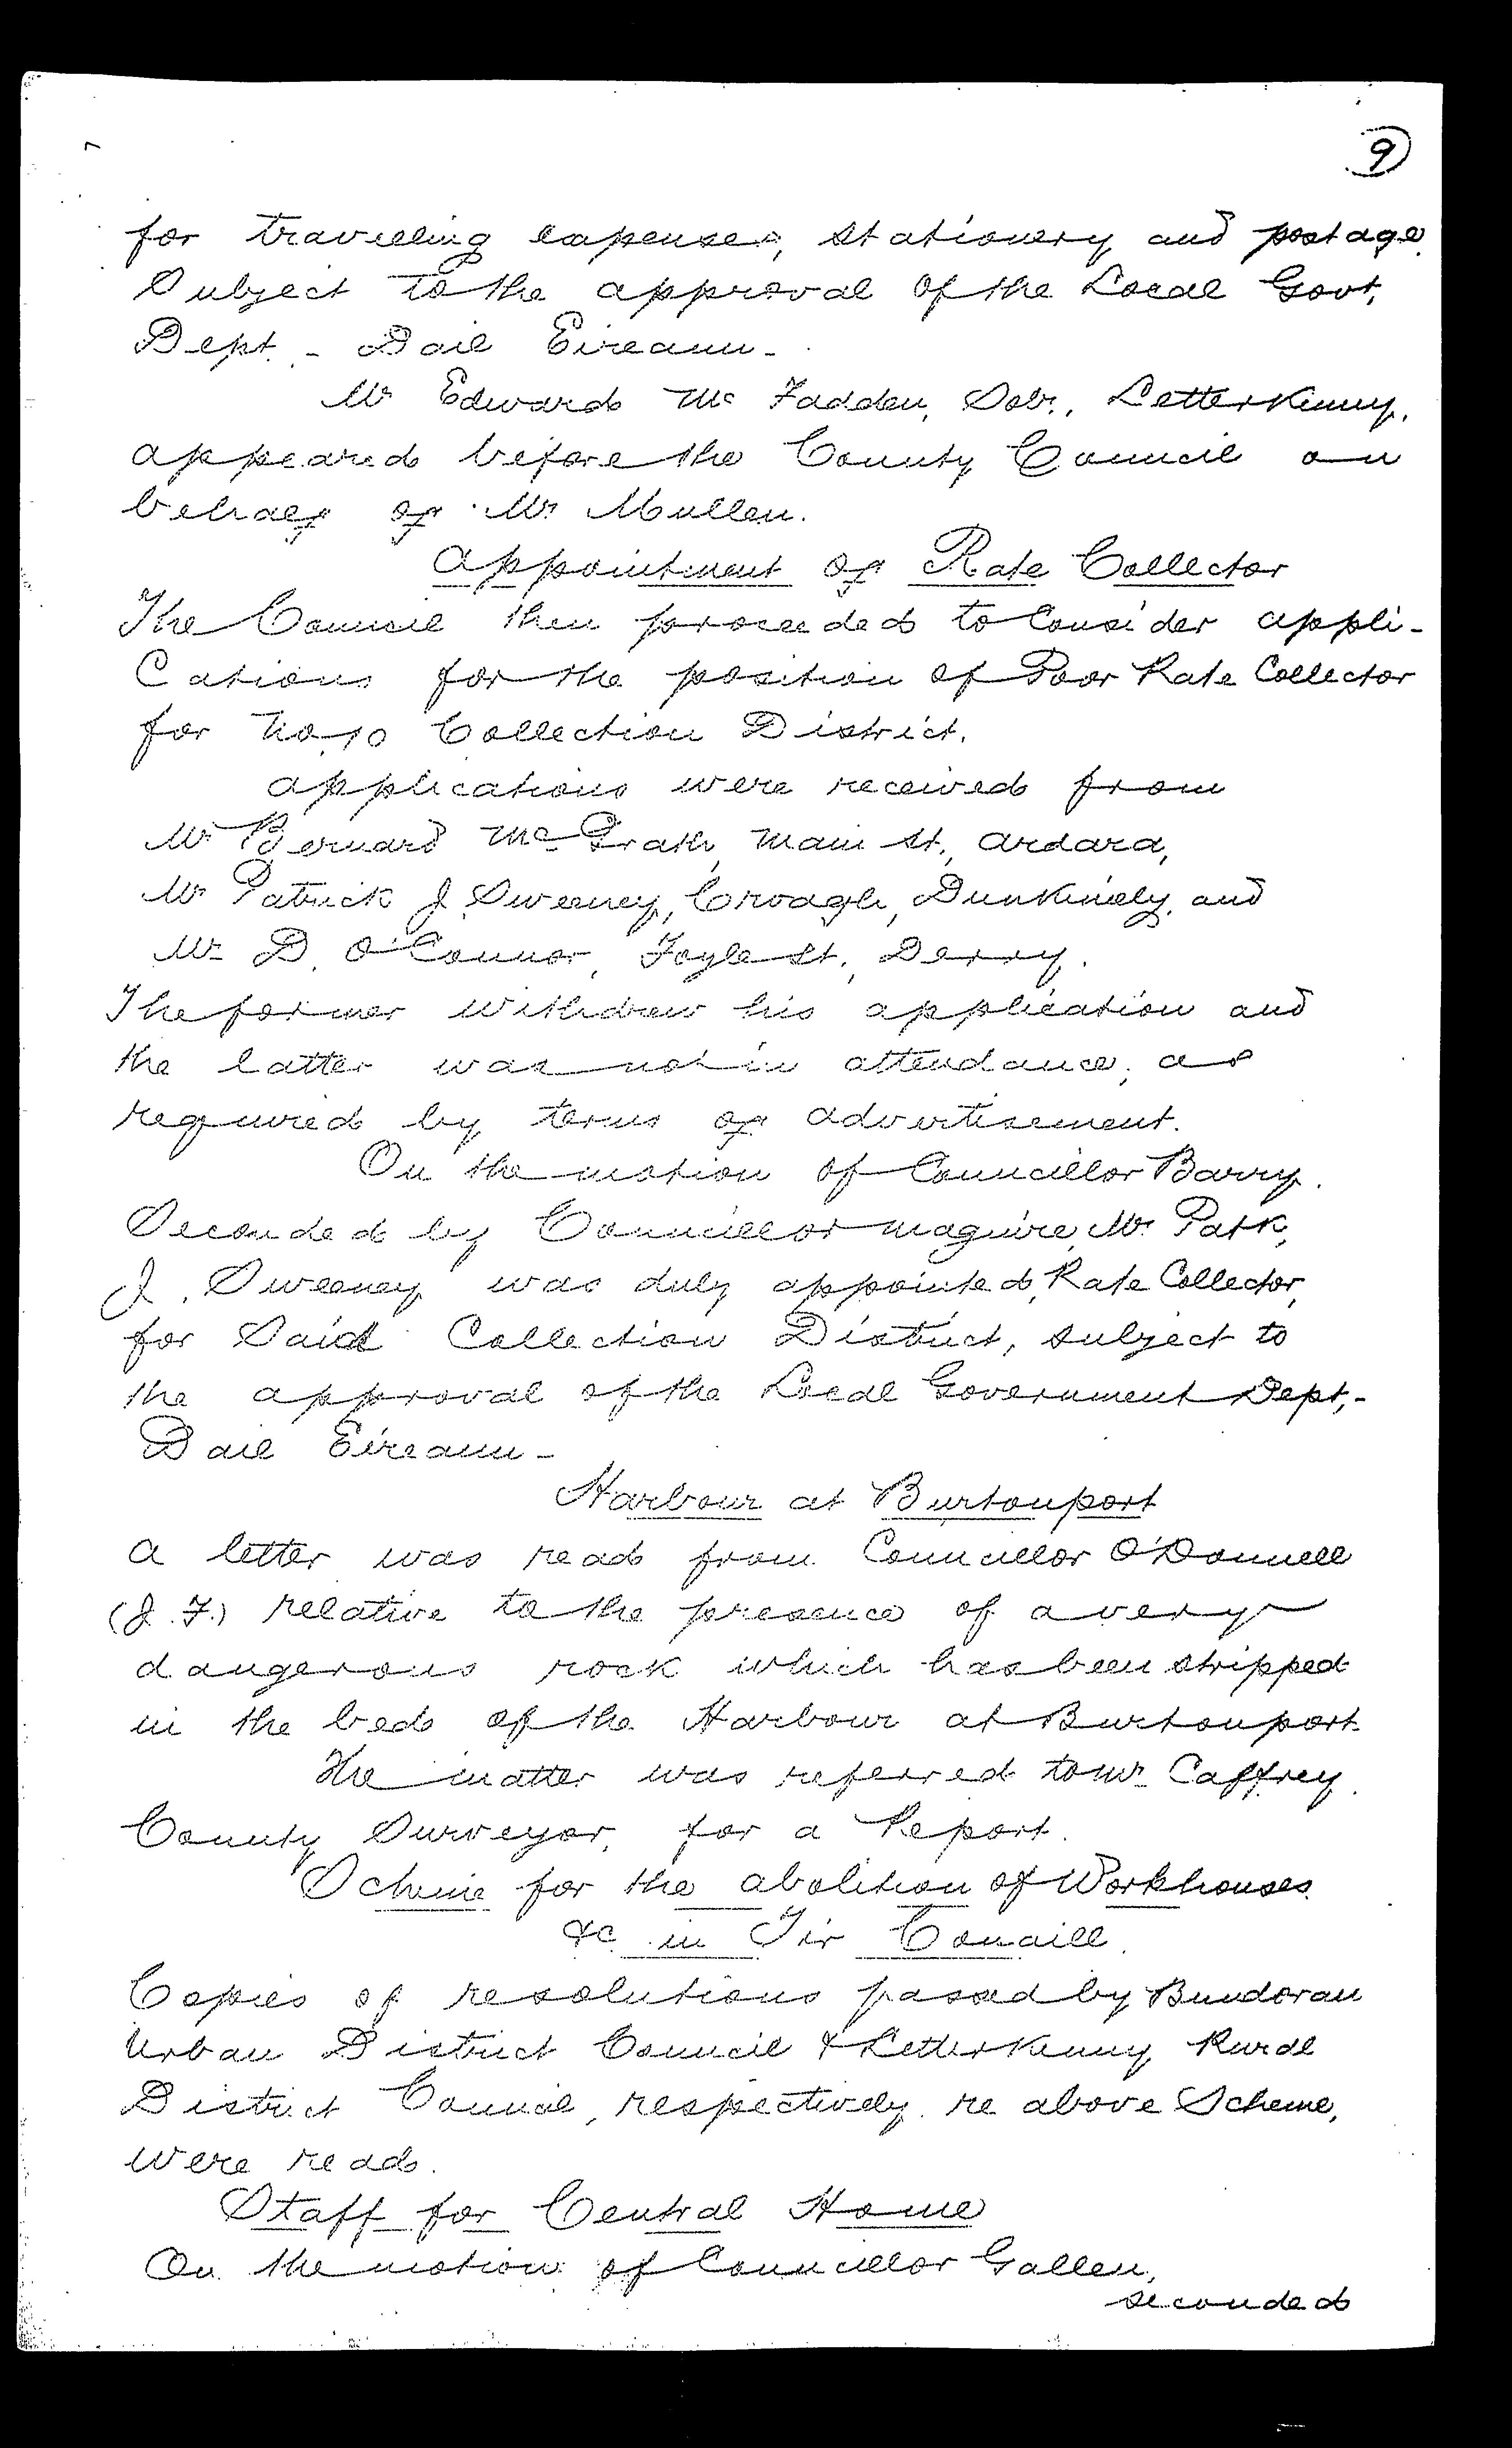 9
for travelling expenses, stationery and postage.
Subject to the approval of the Local Govt,
Dept. - Dail Eireann -
Mr Edward Mc Fadden, Solr., Letterkenny,
appeared before the County Council on
behalf of Mr Mullen.
Appointment of Rate Collector
The Council then proceeded to Consider appli-
Cations for the position of Poor Rate Collector
for No. 10 Collection District.
Applications were received from
Mr Bernard McGrath, Main St., Ardara,
Mr Patrick J. Sweeney, Croagh, Dunkinely, and
Mr D. O'Connor, Foyle St., Derry.
The former withdrew his application and
the latter was not in attendance, as
required by terms of advertisement.
On the motion of Councillor Barry.
Seconded by Councillor Maguire, Mr Patk,
J. Sweeney was duly appointed, Rate Collector,
for Said Collection District, subject to
the approval of the Local Government Dept,-
Dail Eireann -
Harbour at Burtonport
A letter was read from Councillor O'Donnell
(J. F.) relative to the presence of a very
dangerous rock which has been stripped
in the bed of the Harbour at Burtonport.
The matter was referred to Mr Caffrey.
County Surveyor, for a Report.
Scheme for the abolition of Workhouses
&c. in Tir Conaill.
Copies of resolutions passed by Bundoran
Urban District Council & Letterkenny Rural
District Council, respectively. re above Scheme,
were read.
Staff for Central Home
On the motion of Councillor Gallen,
seconded